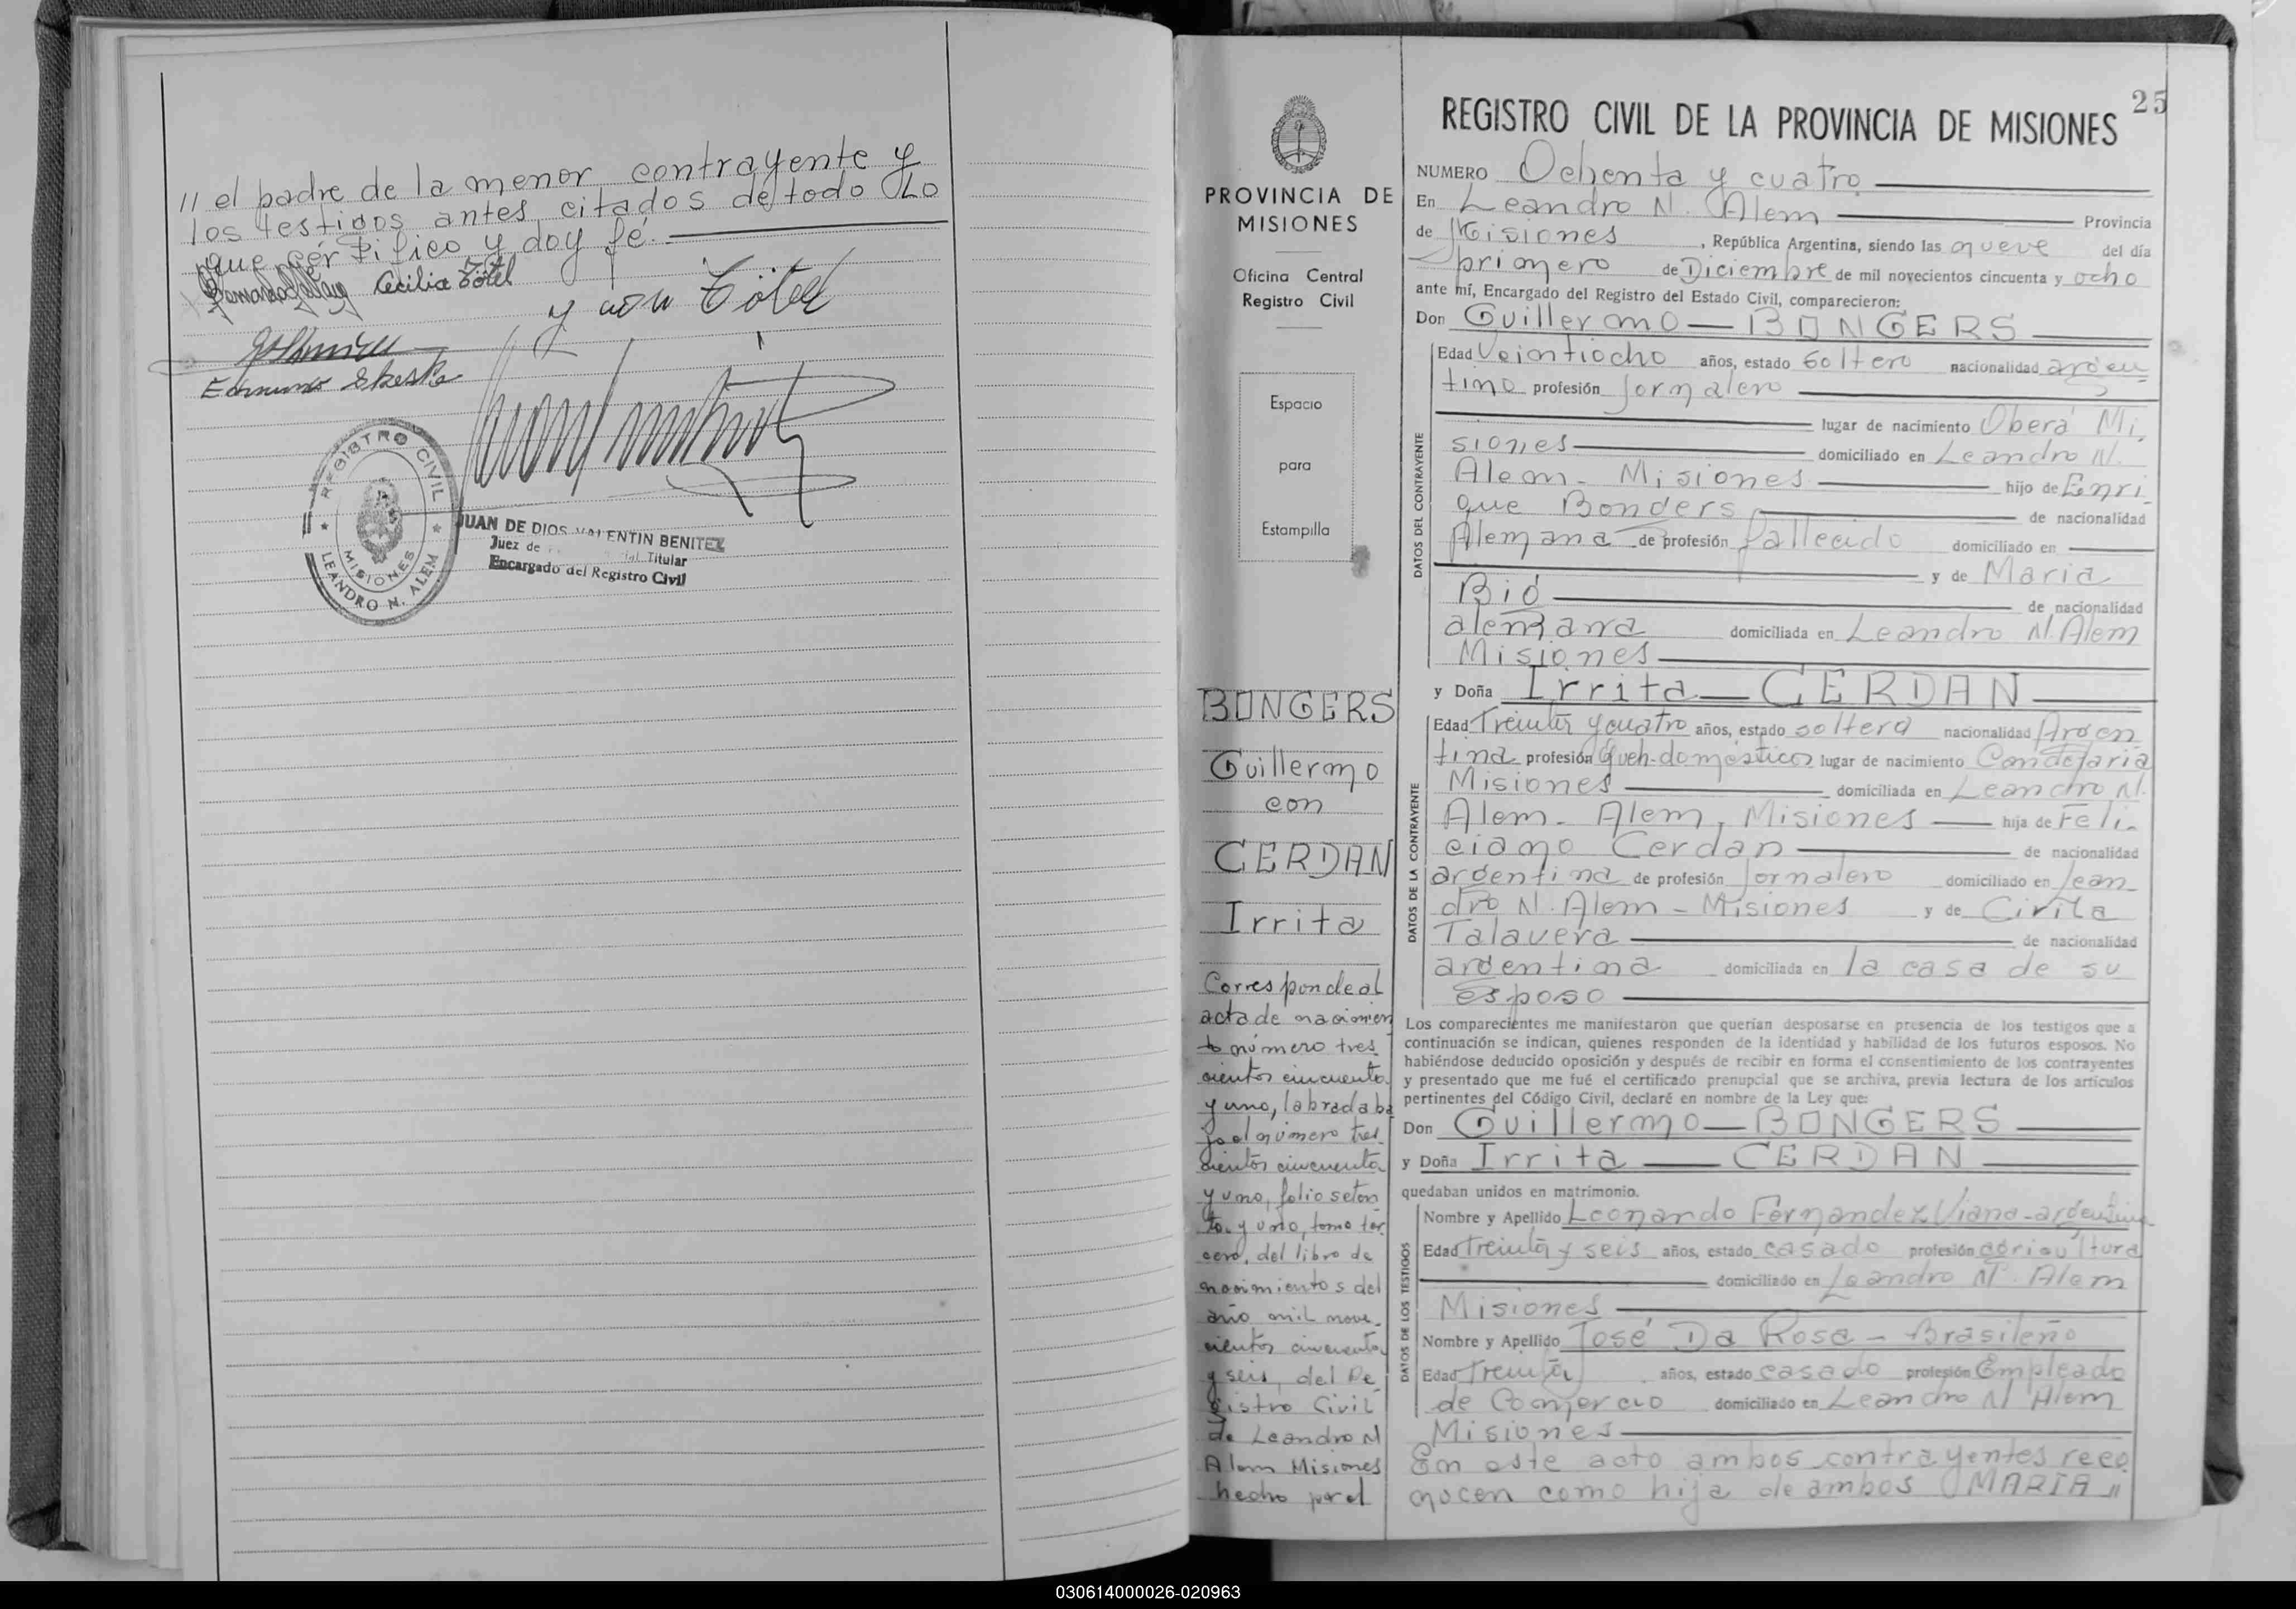 // el padre de la menor contrayente y
los testigos antes citados de todo Lo
que cértifico y doy fé.
Cecilia Tötel
y von Tötel
JUAN DE DIOS VALENTIN BENITEZ
Juez de Titular
Encargado del Registro Civil
REGISTRO CIVIL
MISIONES
LEANDRO N. ALEM
PROVINCIA DE
MISIONES
Oficina Central
Registro Civil
Espacio
para
Estampilla
BONGERS
Guillermo
con
CERDAN
Irrita
Corresponde al
acta de nacimien
to número tres
cientos cincuenta
y uno, labrada ba
jo el número tres
cientos cincuenta
y uno, folio seten
ta y uno, tomo ter
cero, del libro de
nacimientos del
año mil nove
cientos cincuenta
y seis, del Re
gistro Civil
de Leandro N
Alem Misiones
hecho por el
25
REGISTRO CIVIL DE LA PROVINCIA DE MISIONES
NUMERO Ochenta y cuatro
En Leandro N. Alem Provincia
de Misiones, República Argentina, siendo las nueve del día
primero de Diciembre de mil novecientos cincuenta y ocho
ante mí, Encargado del Registro del Estado Civil, comparecieron:
Don Guillermo — BONGERS
Edad Veintiocho años, estado Soltero nacionalidad argen
tino profesión Jornalero
lugar de nacimiento Oberá Mi.
siones domiciliado en Leandro N.
Alem - Misiones hijo de Enri
que Bongers de nacionalidad
Alemana de profesión fallecido domiciliado en
y de Maria
Bió de nacionalidad
alemana domiciliada en Leandro N. Alem
Misiones
y Doña Irrita — CERDAN
Edad Treinta y cuatro años, estado soltera nacionalidad Argen
tina profesión Queh-domésticos lugar de nacimiento Candelaria
Misiones domiciliada en Leandro N.
Alem - Alem, Misiones hija de Feli.
ciano Cerdan de nacionalidad
argentina de profesión Jornalero domiciliado en Lean
dro N. Alem - Misiones y de Cirila
Talavera de nacionalidad
argentina domiciliada en la casa de su
esposo
Los comparecientes me manifestaron que querían desposarse en presencia de los testigos que a
continuación se indican, quienes responden de la identidad y habilidad de los futuros esposos. No
habiéndose deducido oposición y después de recibir en forma el consentimiento de los contrayentes
y presentado que me fué el certificado prenupcial que se archiva, previa lectura de los artículos
pertinentes del Código Civil, declaré en nombre de la Ley que:
Don Guillermo — BONGERS
y Doña Irrita — CERDAN
quedaban unidos en matrimonio.
Nombre y Apellido Leonardo Fernandez Viana - argentino
Edad treinta y seis años, estado casado profesión agricultura
domiciliado en Leandro N. Alem
Misiones
Nombre y Apellido José Da Rosa - Brasileño
Edad Treinta años, estado casado profesión Empleado
de Comercio domiciliado en Leandro N Alem
Misiones
En este acto ambos contrayentes reco
nocen como hija de ambos MARIA //
DATOS DEL CONTRAYENTE
DATOS DE LA CONTRAYENTE
DATOS DE LOS TESTIGOS
030614000026-020963